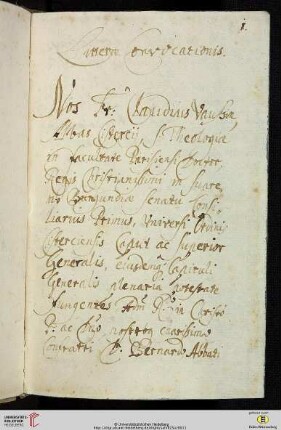 1.
Litterae Convocationis.
Nos Fr: Claudius Vaussin,
Abbas Cistercij, S. Theologiae
in facultate Parisiensi Doctor,
Regis Christianissimi in supre-
mo Burgundiae senatu Consi-
liarius Primus, universi Ordinis
Cisterciensis Caput ac superior
Generalis, eiusdemq Capituli
Generalis plenaria potestate
fungentes in Christo
ac nostro charissimo
Confratri D. Bernardo Abbati
UNIVERSITÄTS-
BIBLIOTHEK
HEIDELBERG
© Universitätsbibliothek Heidelberg